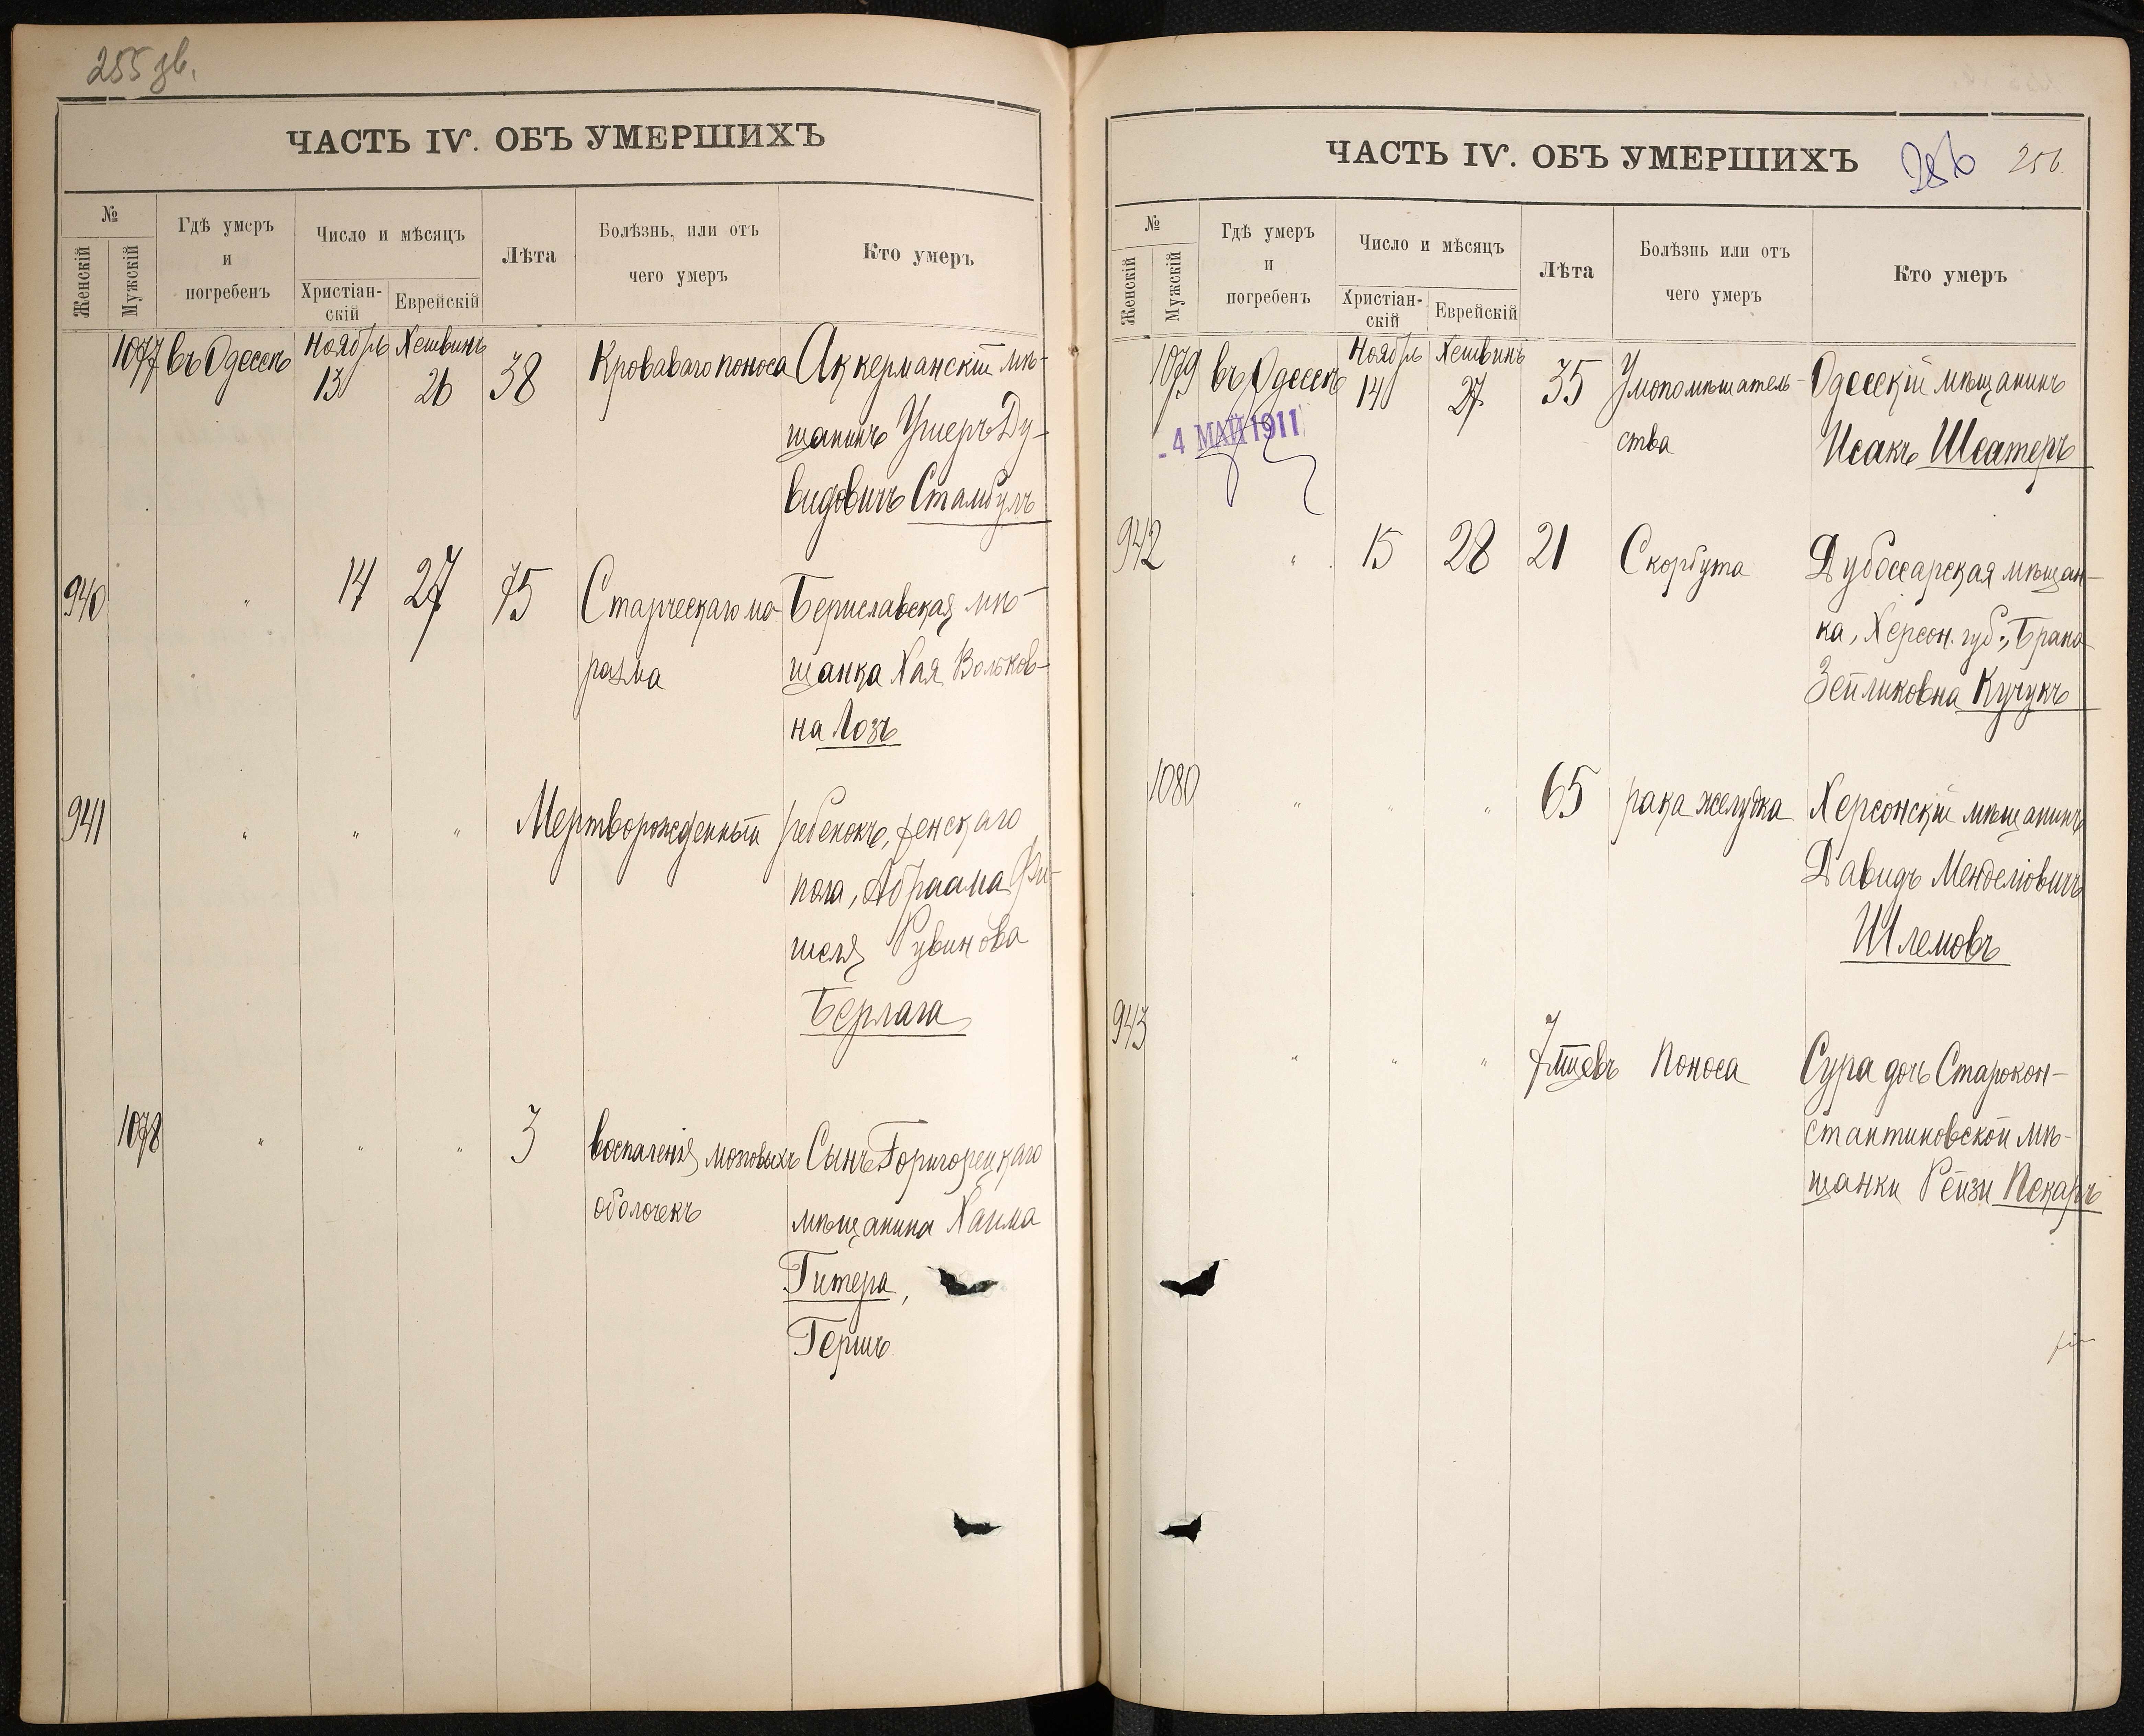 255 зв.
ЧАСТЬ IV. ОБЪ УМЕРШИХЪ
№
Женскій
Мужскій
Гдѣ умеръ
и
погребенъ
Число и мѣсяцъ
Христіан-
скій
Еврейскій
Лѣта
Болѣзнь, или отъ
чего умеръ
Кто умеръ
1077 въ Одессѣ Ноябрь 13 Хешвинъ 26 38 Кроваваго поноса Аккерманскій мѣ-
щанинъ Ушеръ Ду-
видовичъ Стамбулъ
940 " 14 27 75 Старческаго ма- Бериславская мѣ-
разма щанка Хая Вольков-
на Лозъ
941 " " " Мертворожденный ребенокъ, женскаго
пола, Абраама Фи-
шеля Рувинова
Берлага
1078 " " " 3 воспаленія мозговыхъ Сынъ Горигорецкаго
оболочекъ мѣщанина Хаима
Гитера,
Гершъ
ЧАСТЬ IV. ОБЪ УМЕРШИХЪ 256 256.
№
Женскій
Мужскій
Гдѣ умеръ
и
погребенъ
Число и мѣсяцъ
Христіан-
скій
Еврейскій
Лѣта
Болѣзнь или отъ
чего умеръ
Кто умеръ
1079 въ Одессѣ Ноябрь 14 Хешвинъ 27 35 Умопомѣшатель- Одесскій мѣщанинъ
-4 МАЙ 1911
ства Исакъ Шсатеръ
942 " 15 28 21 Скорбута Дубоссарская мѣщан-
ка, Херсон. губ., Брана
Зейликовна Кучукъ
1080 " " " 65 рака желудка Херсонскій мѣщанинъ
Давидъ Менделіовичъ
Шлемовъ
943 " " " 7 мѣсцевъ Поноса Сура дочь Старокон-
стантиновской мѣ-
щанки Рейзи Пекаръ